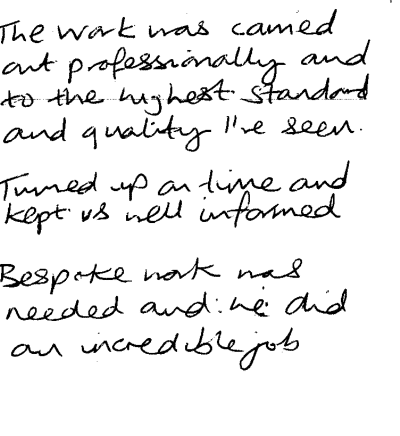 The work was carried
out professionally and
to the highest standard
and quality I've seen.
Turned up on time and
kept us well informed
Bespoke work was
needed and he did
an incredible job